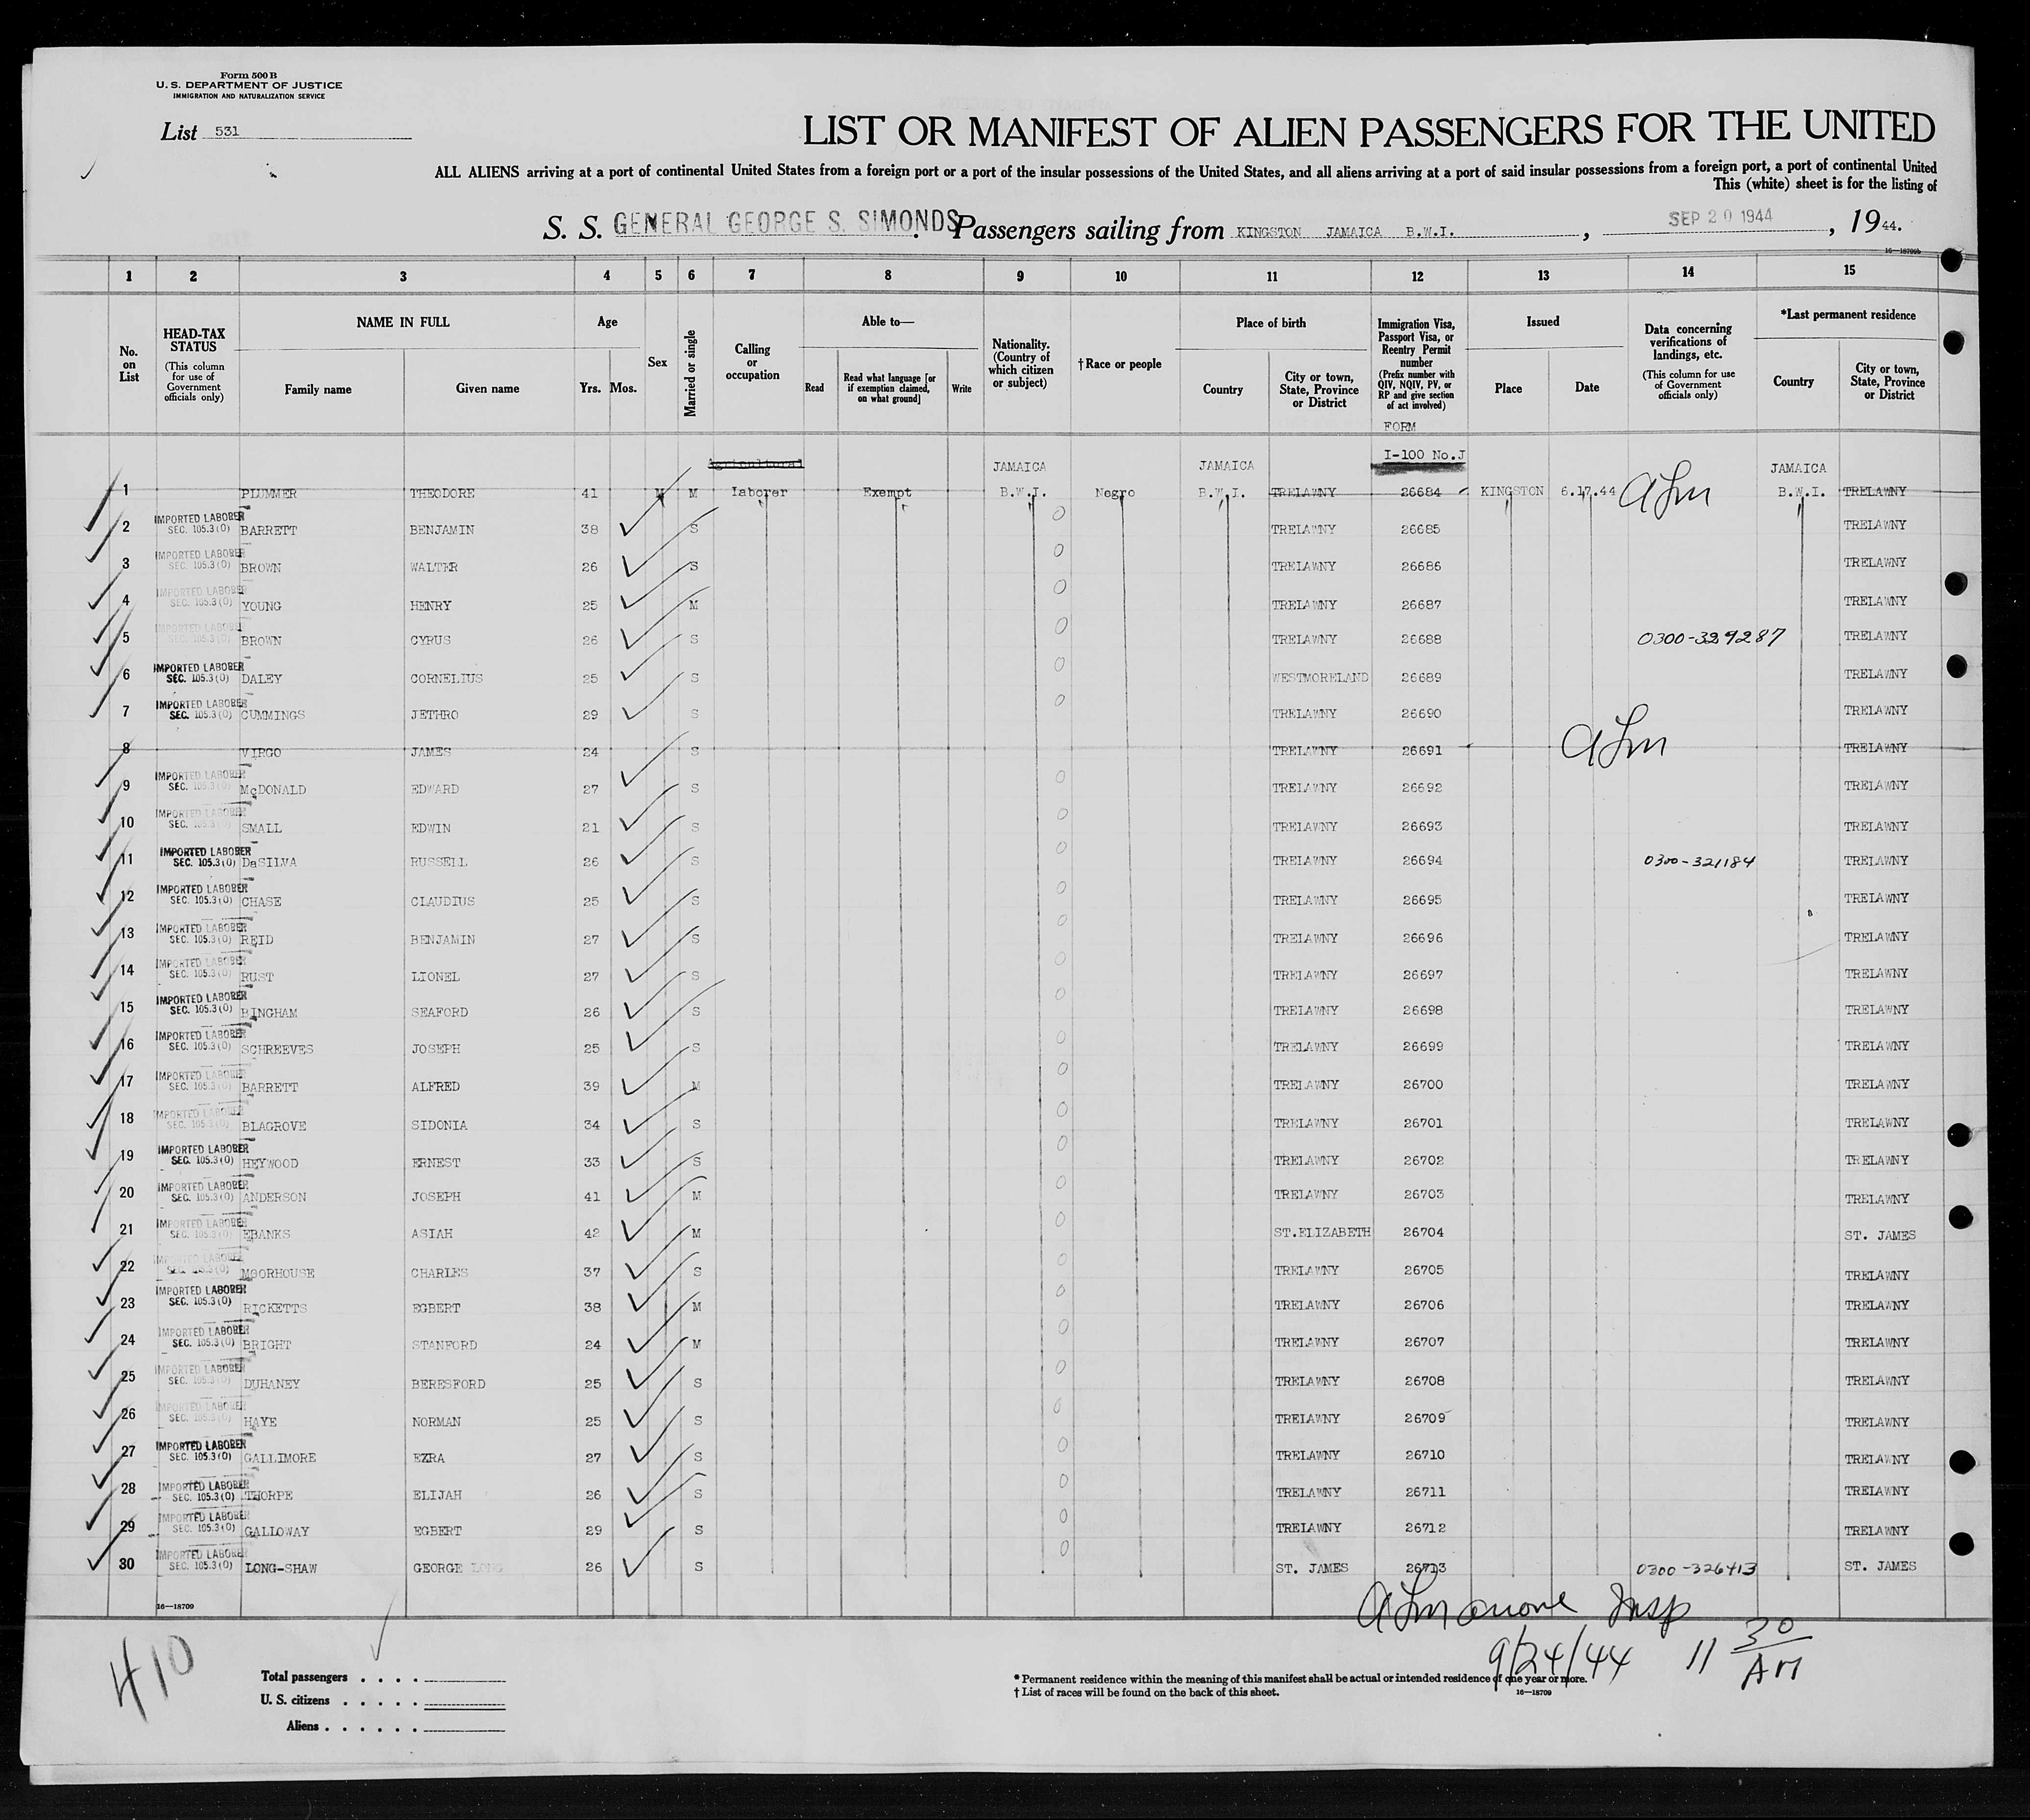 Form 500 B
U. S. DEPARTMENT OF JUSTICE
IMMIGRATION AND NATURALIZATION SERVICE
List 531
LIST OR MANIFEST OF ALIEN PASSENGERS FOR THE UNITED
ALL ALIENS arriving at a port of continental United States from a foreign port or a port of the insular possessions of the United States, and all aliens arriving at a port of said insular possessions from a foreign port, a port of continental United
This (white) sheet is for the listing of
S. S. GENERAL GEORGE S. SIMONDS. Passengers sailing from KINGSTON JAMAICA B.W.I. , SEP 20 1944 , 1944.
16—18709b
1 2 3 4 5 6 7 8 9 10 11 12 13 14 15
No. on List
HEAD-TAX STATUS (This column for use of Government officials only)
NAME IN FULL
Family name Given name
Age
Yrs. Mos.
Sex
Married or single
Calling or occupation
Able to—
Read
Read what language [or if exemption claimed, on what ground]
Write
Nationality. (Country of which citizen or subject)
† Race or people
Place of birth
Country
City or town, State, Province or District
Immigration Visa, Passport Visa, or Reentry Permit number (Prefix number with QIV, NQIV, PV, or RP and give section of act involved)
Issued
Place Date
Data concerning verifications of landings, etc. (This column for use of Government officials only)
*Last permanent residence
Country
City or town, State, Province or District
FORM
Agricultural JAMAICA JAMAICA I-100 No.J JAMAICA
1 PLUMMER THEODORE 41 M M laborer Exempt B.W.I. Negro B.W.I. TRELAWNY 26684 KINGSTON 6.17.44 ALm B.W.I. TRELAWNY
2 IMPORTED LABORER SEC. 105.3(0) BARRETT BENJAMIN 38 S 0 TRELAWNY 26685 TRELAWNY
3 IMPORTED LABORER SEC. 105.3(0) BROWN WALTER 26 S 0 TRELAWNY 26686 TRELAWNY
4 IMPORTED LABORER SEC. 105.3(0) YOUNG HENRY 25 M 0 TRELAWNY 26687 TRELAWNY
5 IMPORTED LABORER SEC. 105.3(0) BROWN CYRUS 26 S 0 TRELAWNY 26688 0300-329287 TRELAWNY
6 IMPORTED LABORER SEC. 105.3(0) DALEY CORNELIUS 25 S 0 WESTMORELAND 26689 TRELAWNY
7 IMPORTED LABORER SEC. 105.3(0) CUMMINGS JETHRO 29 S 0 TRELAWNY 26690 TRELAWNY
8 VIRGO JAMES 24 S TRELAWNY 26691 ALm TRELAWNY
9 IMPORTED LABORER SEC. 105.3(0) McDONALD EDWARD 27 S 0 TRELAWNY 26692 TRELAWNY
10 IMPORTED LABORER SEC. 105.3(0) SMALL EDWIN 21 S 0 TRELAWNY 26693 TRELAWNY
11 IMPORTED LABORER SEC. 105.3(0) DaSILVA RUSSELL 26 S 0 TRELAWNY 26694 0300-321184 TRELAWNY
12 IMPORTED LABORER SEC. 105.3(0) CHASE CLAUDIUS 25 S 0 TRELAWNY 26695 TRELAWNY
13 IMPORTED LABORER SEC. 105.3(0) REID BENJAMIN 27 S 0 TRELAWNY 26696 TRELAWNY
14 IMPORTED LABORER SEC. 105.3(0) RUST LIONEL 27 S 0 TRELAWNY 26697 TRELAWNY
15 IMPORTED LABORER SEC. 105.3(0) BINGHAM SEAFORD 26 S 0 TRELAWNY 26698 TRELAWNY
16 IMPORTED LABORER SEC. 105.3(0) SCHREEVES JOSEPH 25 S 0 TRELAWNY 26699 TRELAWNY
17 IMPORTED LABORER SEC. 105.3(0) BARRETT ALFRED 39 M 0 TRELAWNY 26700 TRELAWNY
18 IMPORTED LABORER SEC. 105.3(0) BLAGROVE SIDONIA 34 S 0 TRELAWNY 26701 TRELAWNY
19 IMPORTED LABORER SEC. 105.3(0) HEYWOOD ERNEST 33 S 0 TRELAWNY 26702 TRELAWNY
20 IMPORTED LABORER SEC. 105.3(0) ANDERSON JOSEPH 41 M 0 TRELAWNY 26703 TRELAWNY
21 IMPORTED LABORER SEC. 105.3(0) EBANKS ASIAH 42 M 0 ST.ELIZABETH 26704 ST. JAMES
22 IMPORTED LABORER SEC. 105.3(0) MOORHOUSE CHARLES 37 S 0 TRELAWNY 26705 TRELAWNY
23 IMPORTED LABORER SEC. 105.3(0) RICKETTS EGBERT 38 M 0 TRELAWNY 26706 TRELAWNY
24 IMPORTED LABORER SEC. 105.3(0) BRIGHT STANFORD 24 M 0 TRELAWNY 26707 TRELAWNY
25 IMPORTED LABORER SEC. 105.3(0) DUHANEY BERESFORD 25 S 0 TRELAWNY 26708 TRELAWNY
26 IMPORTED LABORER SEC. 105.3(0) HAYE NORMAN 25 S 0 TRELAWNY 26709 TRELAWNY
27 IMPORTED LABORER SEC. 105.3(0) GALLIMORE EZRA 27 S 0 TRELAWNY 26710 TRELAWNY
28 IMPORTED LABORER SEC. 105.3(0) THORPE ELIJAH 26 S 0 TRELAWNY 26711 TRELAWNY
29 IMPORTED LABORER SEC. 105.3(0) GALLOWAY EGBERT 29 S 0 TRELAWNY 26712 TRELAWNY
30 IMPORTED LABORER SEC. 105.3(0) LONG-SHAW GEORGE LONG 26 S 0 ST. JAMES 26713 0300-326413 ST. JAMES
16—18709
Insp
9/24/44 11 30 AM
410
Total passengers . . . .
U. S. citizens . . . . .
Aliens . . . . . .
* Permanent residence within the meaning of this manifest shall be actual or intended residence of one year or more.
† List of races will be found on the back of this sheet.
16—18709